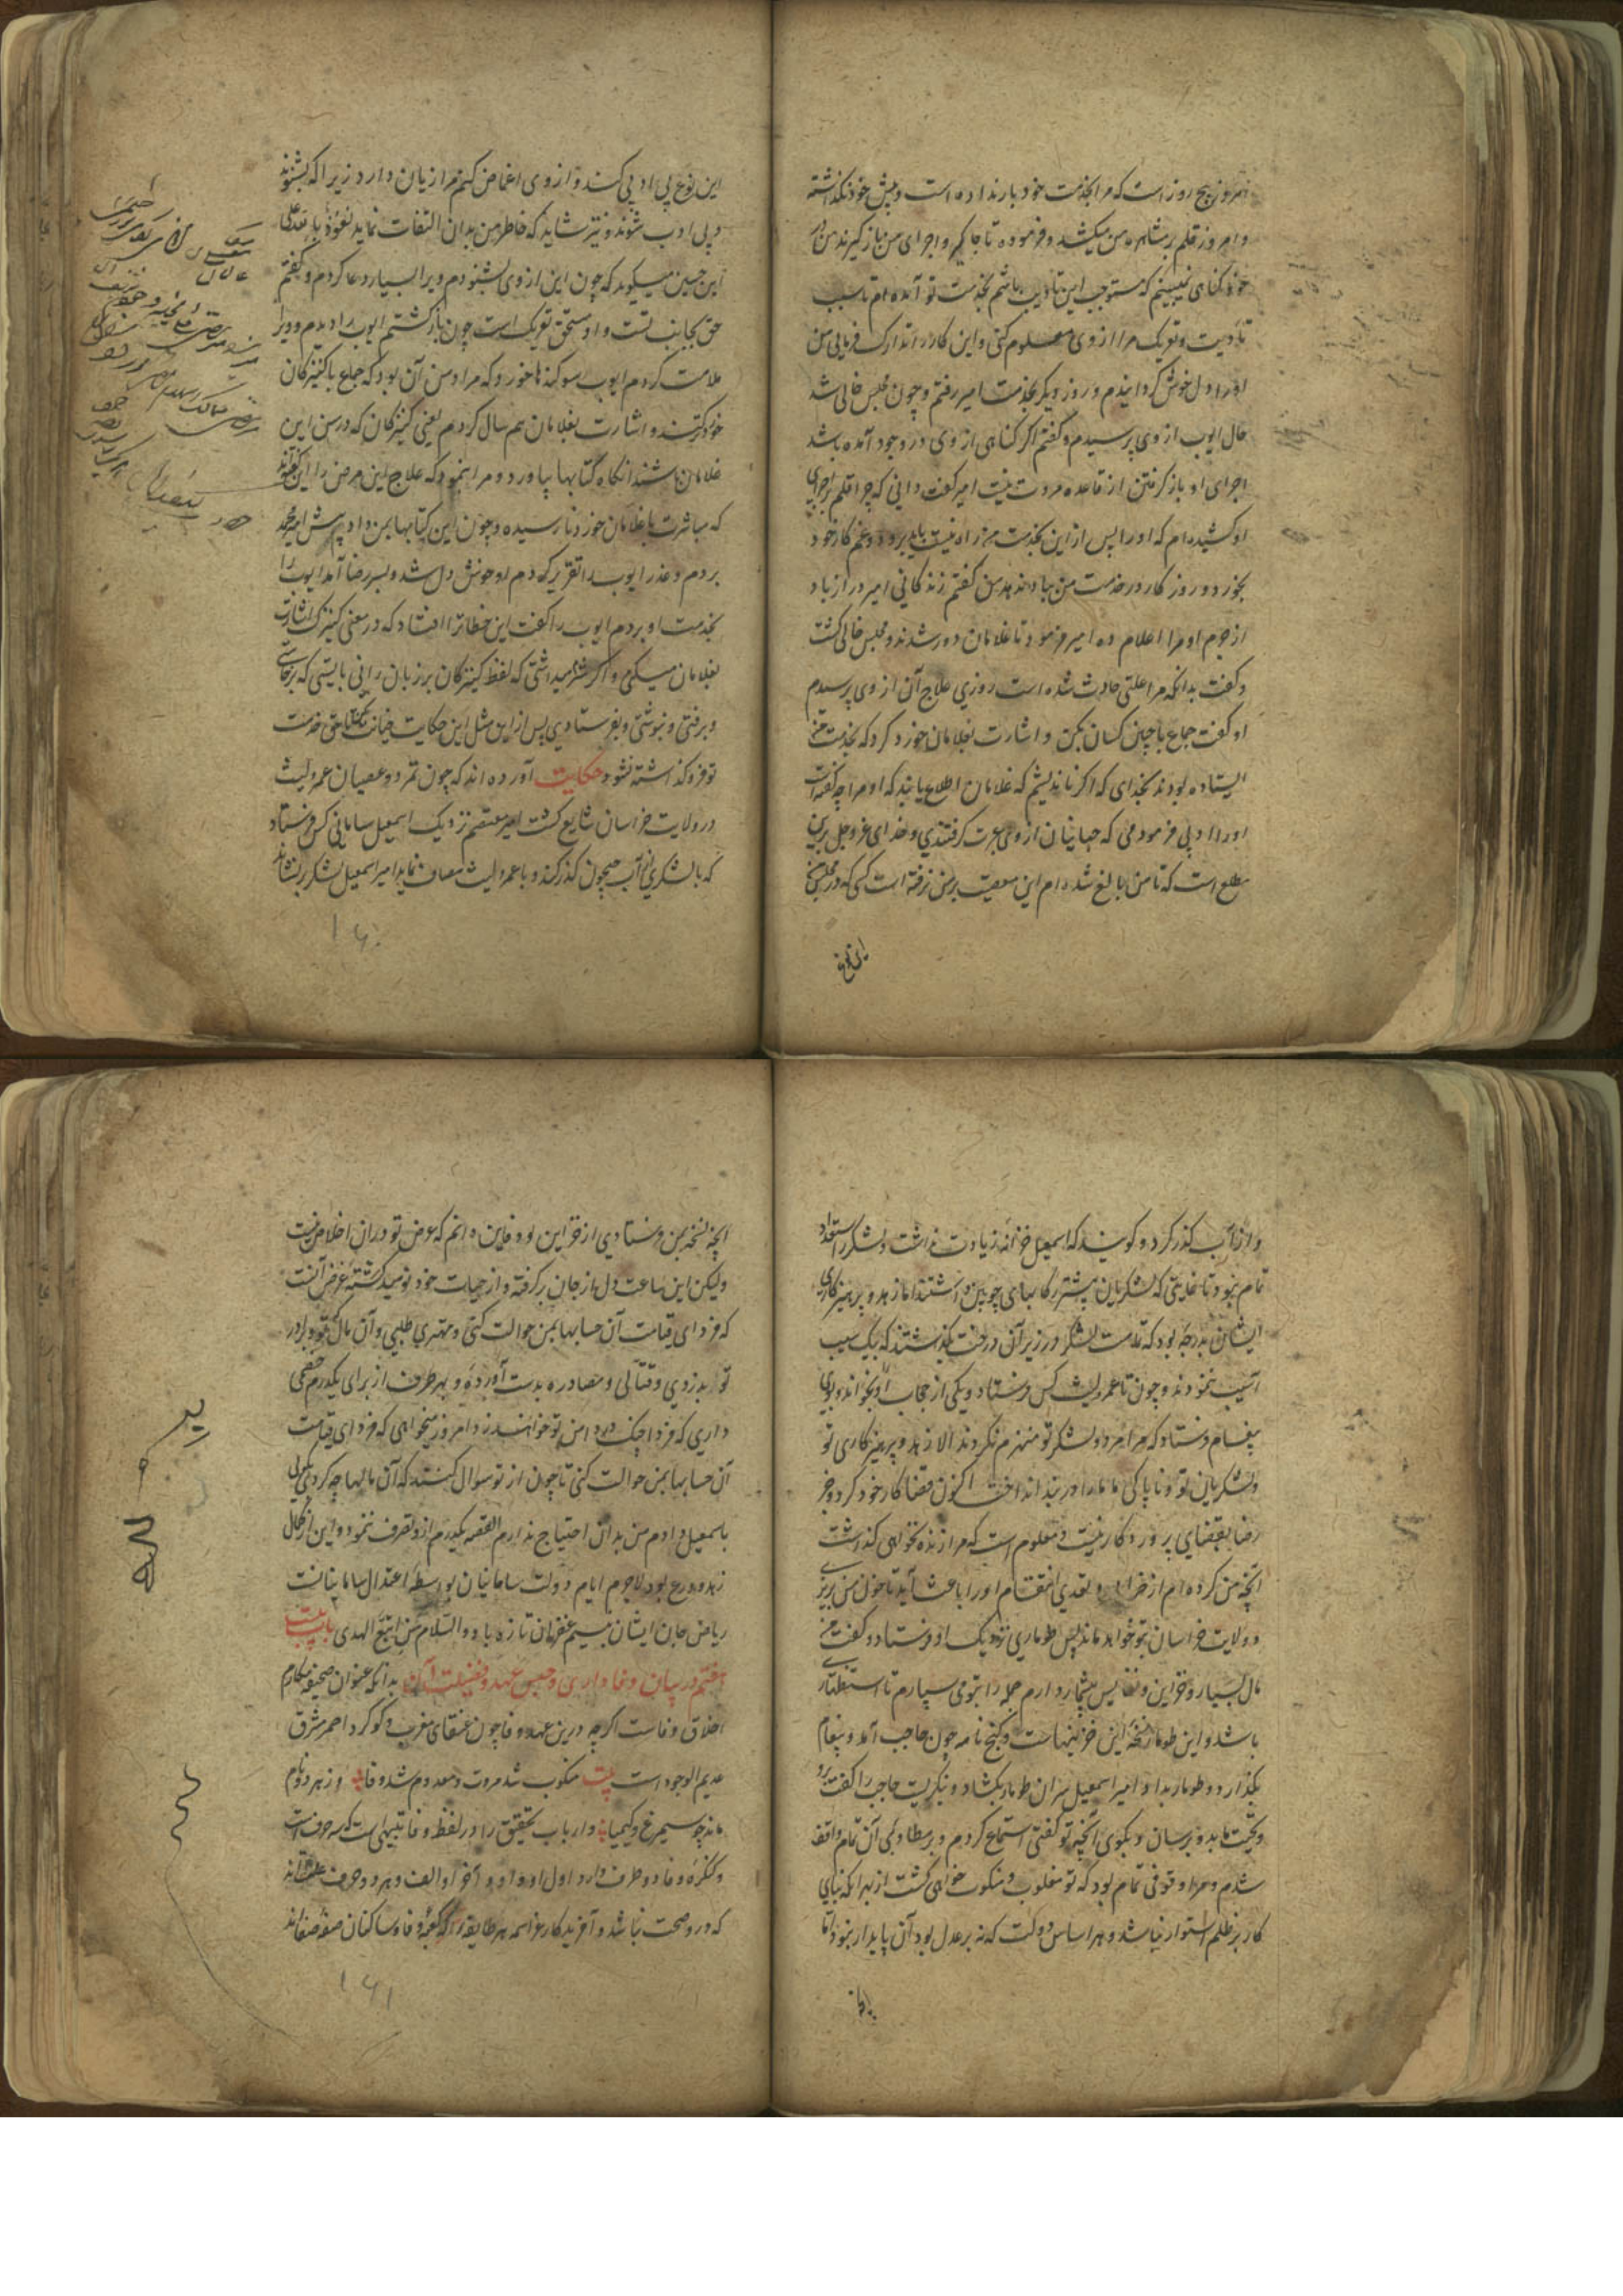 امروز پنج روز است که مرا بخدمت خود بار نداده است و پیش خود نگذاشته
و امروز قلم بر مشاهره من میکشد و فرموده تا جامگی و اجرای من باز گیرند من
خود گناهی نمیبینم که مستوجب این تادیب باشم بخدمت تو آمده ام تا سبب
تادیب و تعریک مرا از وی معلوم کنی و این کار را تدارک فرمایی من
او را دل خوش گردانیدم و روز دیگر بخدمت امیر رفتم و چون مجلس خالی شد
حال ایوب از وی پرسیدم و گفتم اگر گناهی از وی در وجود آمده باشد
اجرای او باز گرفتن از قاعده مروت نیست امیر گفت دانی که چرا قلم بر اجرای
او کشیده ام که او را پس از این بخدمت من راه نیست باید برود و غم کار خود
بخورد و روزکار در خدمت من بباد ندهد من گفتم زندکانی امیر دراز باد
از جرم او مرا اعلام ده امیر فرمود تا غلامان دور شدند و مجلس خالی گشت
و گفت بدانکه مرا علتی حادث شده است روزی علاج آن از وی پرسیدم
او گفت جماع با چنین کسان بکن و اشارت بغلامان خورد کرد که بخدمت من
ایستاده بودند بخدای که اگر نه اندیشم که غلامان اطلاع یابند که او مرا چه گفته است
او را ادبی فرمودمی که جهانیان از وی عبرت گرفتندی و خدای عز و جل برین
مطلع است که تا من بالغ شده ام این معصیت بر من نرفته است کسی که در مجلس
این نوع
این نوع بی ادبی کند و از وی اغماض کنم مرا زیان دارد زیرا که بشنوند
و بی ادب شوند و نیز شاید که خاطر من بدان التفات نماید نعوذ بالله تعالی
ابن حسین میگوید که چون این از وی بشنودم ویرا بسیار دعا کردم و گفتم
حق بجانب تست و او مستحق تعریک است چون بازگشتم ایوب را دیدم و ویرا
ملامت کردم ایوب سوگندها خورد که مراد من آن بود که جماع با کنیزکان
خورد کنند و اشارت بغلامان هم سال کردم یعنی کنیزکان که در سن این
غلامان باشند آنکاه کتابها بیاورد و مرا بنمود که علاج این مرض را این گفته اند
که مباشرت با غلامان خورد نارسیده و چون این کتابها بمن داد پیش امیر محمد
بردم و عذر ایوب را تقریر کردم او خوش دل شد و بسر رضا آمد ایوب را
بخدمت او بردم ایوب را گفت این خطا ترا افتاد که در معنی کنیزک اشارت
بغلامان میکنی و اگر شرم میداشتی که لفظ کنیزکان بر زبان رانی بایستی که برخاستی
و برفتی و نبوشتی و بفرستادی پس از این مثل این حکایت خیانت مکن تا حق خدمت
تو فرو گذاشته نشود حکایت آورده اند که چون تمرد و عصیان عمرو لیث
در ولایت خراسان شایع گشت امیر معتصم نزدیک اسمعیل سامانی کس فرستاد
که با لشکری از آب جیحون گذر کند و با عمرو لیث مصاف نماید امیر اسمعیل لشکر بر نشاند
۱۶۰
و از آب گذر کرد و گویند که اسمعیل خزانه زیادت نداشت و لشکر را استعداد
تمام نبود تا غایتی که لشکریان بیشتر رکابهای چوبین داشتند اما زهد و پرهیزکاری
ایشان بدرجه بود که تمامت لشکر در زیر آن درخت بگذشتند که بیک سیب
آسیب ننمودند و چون تا عمرو لیث کس فرستاد و یکی از حجاب او بخواند و بوی
پیغام فرستاد که مرا مرد و لشکر تو منهزم نکردند الا زهد و پرهیزکاری تو
و لشکریان تو و ناپاکی ما ما را در بند انداخت اکنون قضا کار خود کرد و جز
رضا بقضای پروردکار نیست و معلوم است که مرا زنده نخواهی گذاشت
آنچه من کرده ام از خرابی و تعدی انتقام او را باعث آید تا خون من بریزی
و ولایت خراسان بتو خواهد ماند پس طوماری نزدیک او فرستاد و گفت من
مال بسیار و خزاین و نفایس بیشمار دارم جمله را بتو می سپارم تا استظهار
باشد و این طومار نسخه این خزینهاست و گنج نامه چون حاجب آمد و پیغام
بگذارد و طومار بداد امیر اسمعیل سر آن طومار بگشاد و بنگریست حاجب را گفت برو
و تحیت ما بدو برسان و بگوی آنچه تو گفتی استماع کردم و بر مطاوی آن تمام واقف
شدم و مرا وقوفی تمام بود که تو مغلوب و منکوب خواهی گشت از بهر آنکه بنای
کار بر ظلم استوار نباشد و هر اساس دولت که نه بر عدل بود آن پایدار نبود اما
آنچه نسخه بمن فرستادی از خزاین و دفاین دانم که عرض تو در آن اخلاص نیست
ولیکن این ساعت دل از جان برگرفته و از حیات خود نومید گشته غرض آنست
که فردای قیامت آن حسابها بمن حوالت کنی و مهتری طلبی و آن مال که تو و برادر
تو بدزدی و قتالی و مصادره بدست آورده و بهر طرف از برای یکدرم خصمی
داری که فردا چنگ در دامن تو خواهند زد امروز میخواهی که فردای قیامت
آن حسابها بمن حوالت کنی تا چون از تو سوال کنند که آن مالها چه کردی بگویی
باسمعیل دادم من بدان احتیاج ندارم القصه یکدرم ازو تصرف ننمود و این از کمال
زهد و ورع بود لاجرم ایام دولت سامانیان بواسطه اعتدال سامانیانست
ریاض جان ایشان بنسیم غفران تازه باد و السلام من اتبع الهدی باب بیست
هفتم در بیان وفا داری و حسن عهد و فضیلت آن بدانکه عنوان صحیفه مکارم
اخلاق وفاست اگر چه درین عهد وفا چون عنقای مغرب و گوگرد احمر مشرق
عدیم الوجود است بیت منکوب شد مروت و معدوم شد وفا وز هر دو نام
ماند چو سیمرغ و کیمیا و ارباب تحقیق را در لفظ وفا تنبیهی است که سه حرف است
و کنگره وفا دو طرف دارد اول او واو و آخر او الف و هر دو حرف علت اند
که درو صحت نباشد و آفریدکار عز اسمه هر طایفه را که کعبه وفا و ساکنان صفه صفا اند
۱۶۱